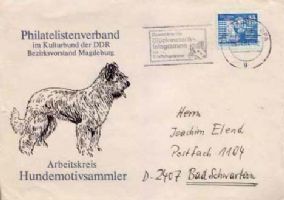 Philatelistenverband
im Kulturbund der DDR
Bezirksvorstand Magdeburg
Arbeitskreis
Hundemotivsammler
Herrn
Joachim Elend
Postfach 1104
D-2407 Bad Schwartau